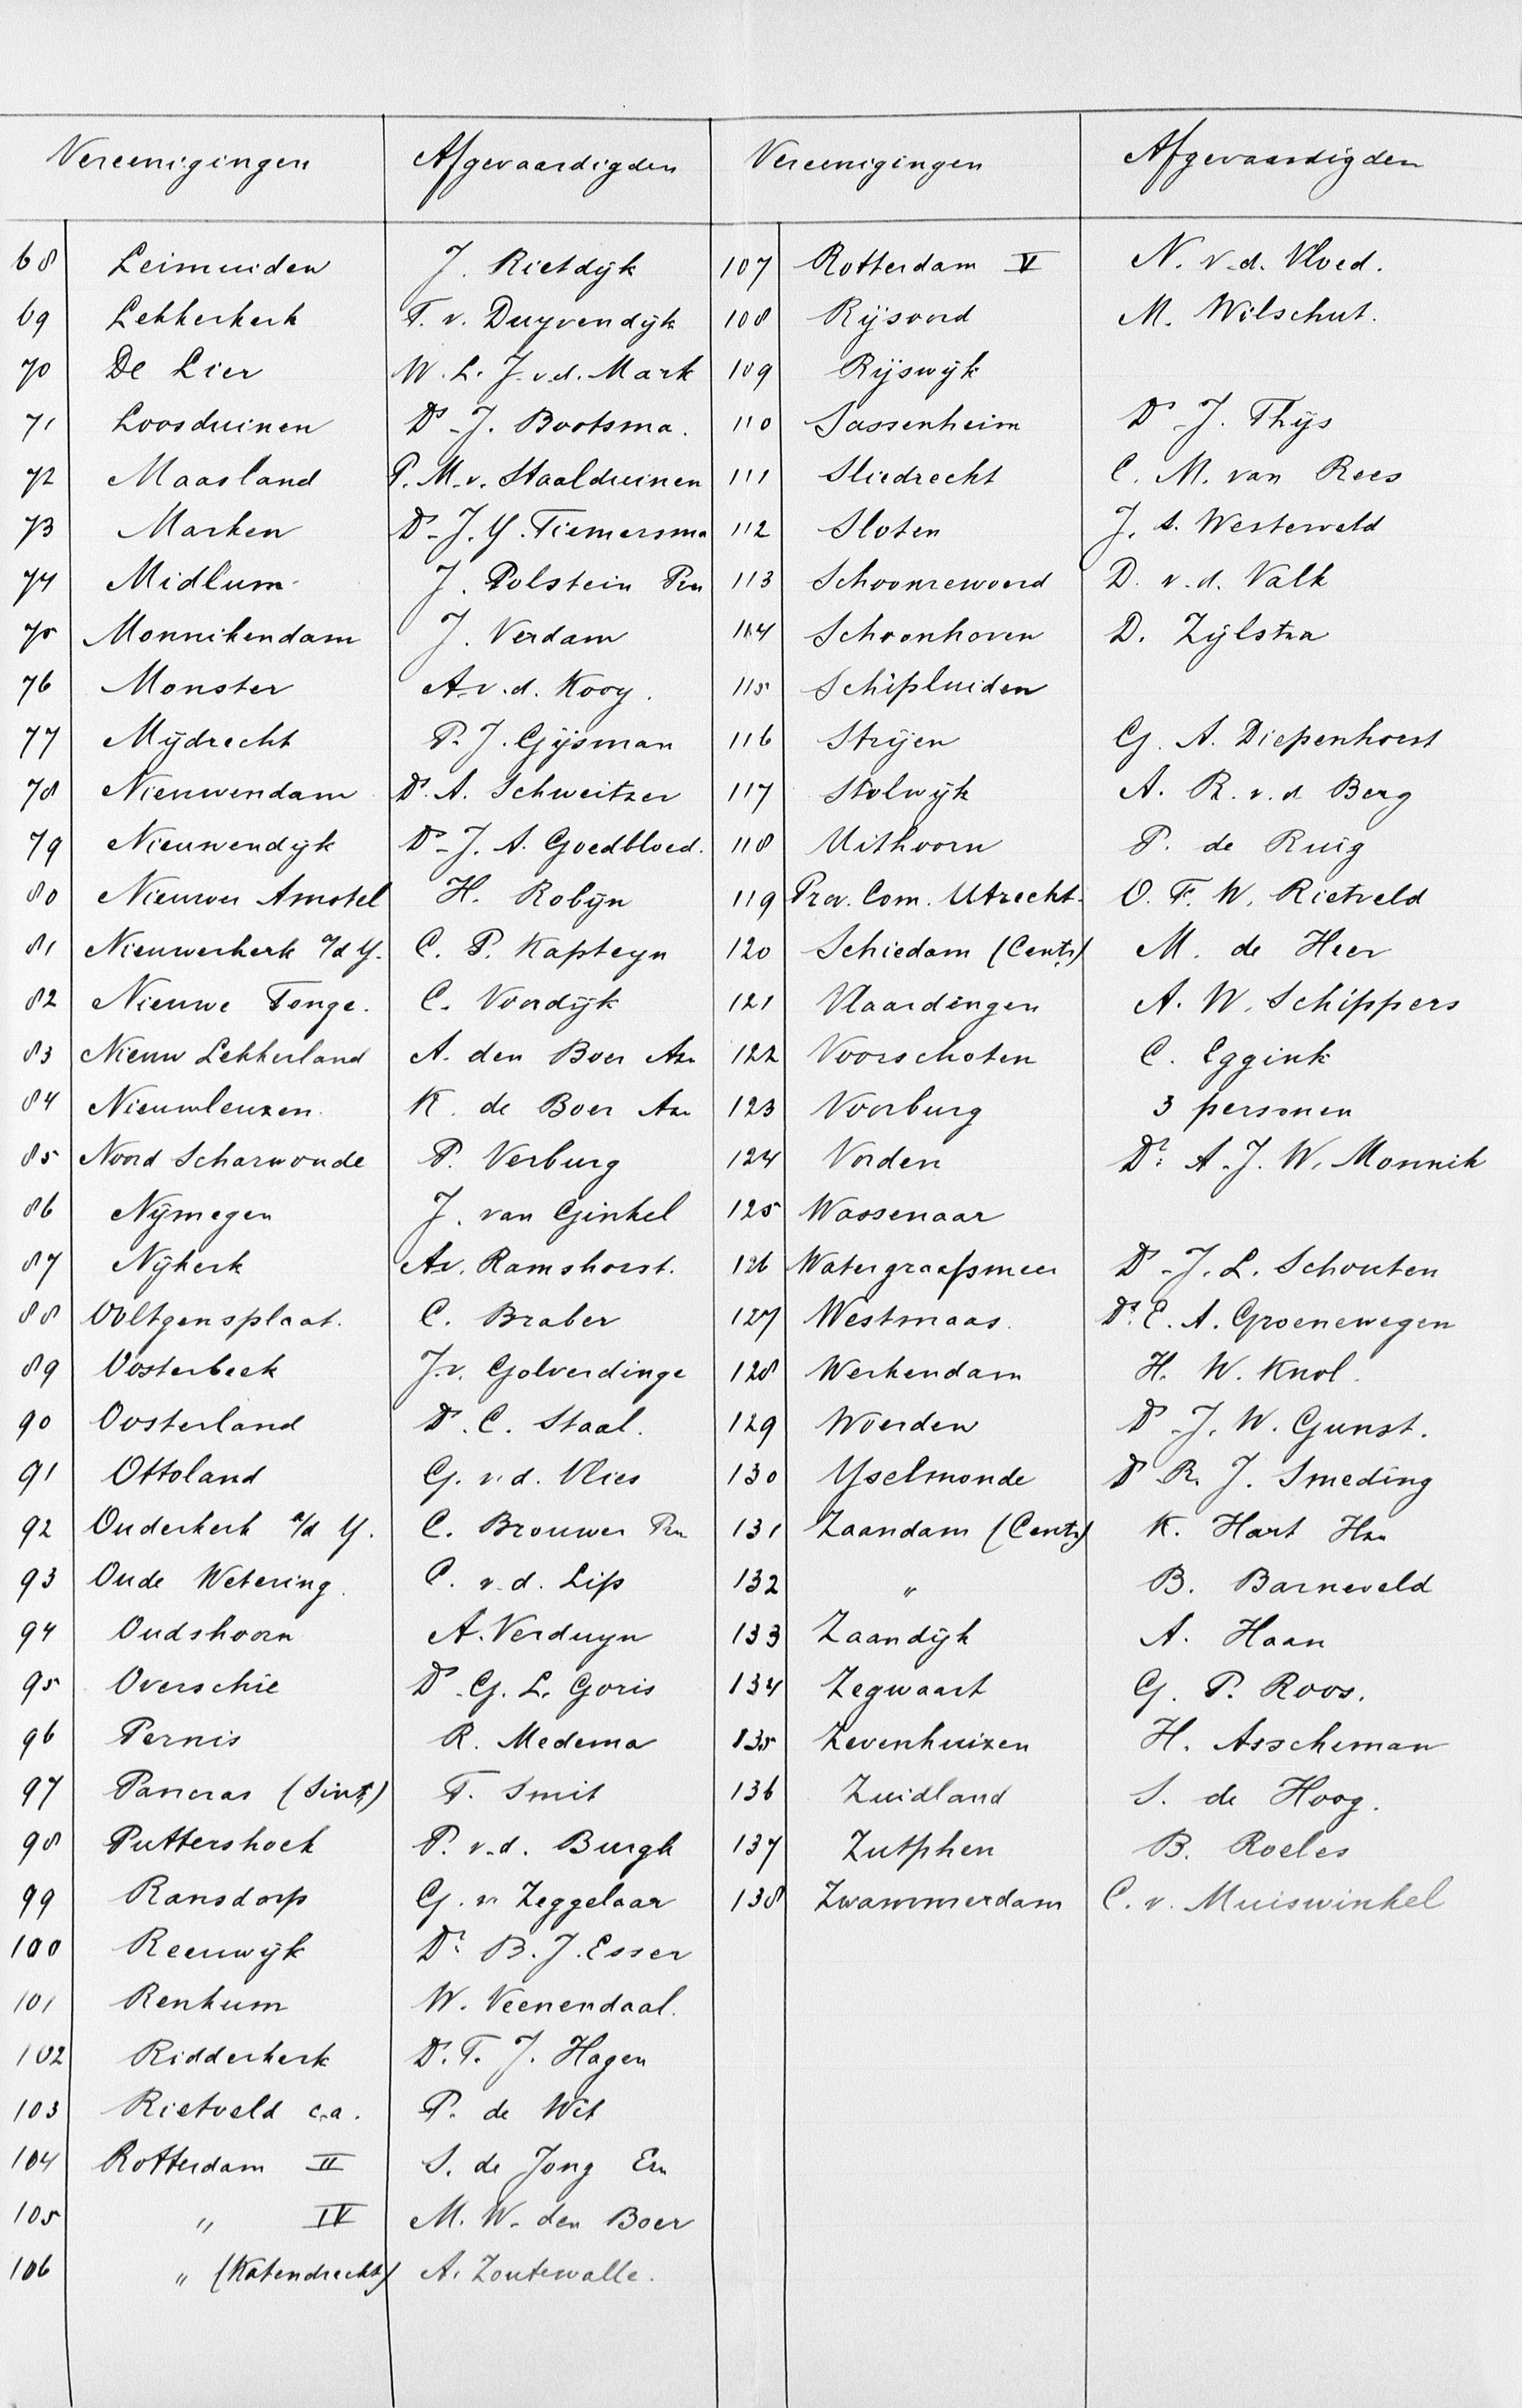 Vereenigingen Afgevaardigden Vereenigingen Afgevaardigden
68 Leimuiden J. Rietdijk 107 Rotterdam V N. v.d. Vloed.
69 Lekkerkerk T. v. Duyvendijk 108 Rijsoord M. Wilschut.
70 De Lier W. L. J. v.d. Mark 109 Rijswijk
71 Loosduinen Ds J. Bootsma. 110 Sassenheim Ds J. Thijs
72 Maasland P. M. v. Staalduinen 111 Sliedrecht C. M. van Rees
73 Marken Ds J. Y. Tiemersma 112 Sloten J. S. Westerveld
74 Midlum J. Polstein Pzn 113 Schoonrewoerd D. v.d. Valk
75 Monnikendam J. Verdam 114 Schoonhoven D. Zijlstra
76 Monster A. v.d. Kooy. 115 Schipluiden
77 Mijdrecht P. J. Gijsman 116 Strijen G. A. Diepenhorst
78 Nieuwendam Ds. A. Schweitzer 117 Stolwijk A. R. v.d. Berg
79 Nieuwendijk Ds J. A. Goedbloed. 118 Uithoorn P. de Ruig
80 Nieuwer Amstel H. Robijn 119 Prov. Com. Utrecht. O. F. W. Rietveld
81 Nieuwerkerk a/d Y. C. P. Kapteyn 120 Schiedam (Centr) M. de Heer
82 Nieuwe Tonge. C. Voordijk 121 Vlaardingen A. W. Schippers
83 Nieuw Lekkerland A. den Boer Azn 122 Voorschoten C. Eggink
84 Nieuwleuzen K. de Boer Azn 123 Voorburg 3 personen
85 Noord Scharwoude P. Verburg 124 Vorden Dr. A. J. W. Monnik
86 Nijmegen J. van Ginkel 125 Wassenaar
87 Nijkerk A. v. Ramshorst. 126 Watergraafsmeer Ds J. L. Schouten
88 Ooltgensplaat. C. Braber 127 Westmaas. Ds. E. A. Groenewegen
89 Oosterbeek J. v. Golverdinge 128 Werkendam H. W. Knol.
90 Oosterland Ds. C. Staal. 129 Woerden Ds J. W. Gunst.
91 Ottoland G. v.d. Vlies 130 Yselmonde Ds R. J. Smeding
92 Ouderkerk a/d Y. C. Brouwer Pzn 131 Zaandam (Centr) K. Hart Hzn
93 Oude Wetering. C. v.d. Lip 132 " B. Barneveld
94 Oudshoorn A. Verduyn 133 Zaandijk A. Haan
95 Overschie Ds G. L. Goris 134 Zegwaart G. P. Roos.
96 Pernis R. Medema 135 Zevenhuizen H. Asscheman
97 Pancras (Sint) T. Smit 136 Zuidland S. de Hoog.
98 Puttershoek P. v.d. Burgh 137 Zutphen B. Roeles
99 Ransdorp G. v. Zeggelaar 138 Zwammerdam C. v. Muiswinkel
100 Reeuwijk Dr. B. J. Esser
101 Renkum W. Veenendaal.
102 Ridderkerk Ds. T. J. Hagen
103 Rietveld c.a. P. de Wit
104 Rotterdam II S. de Jong Ezn
105 " IV M. W. den Boer
106 " (Katendrecht) A. Zoutewalle.